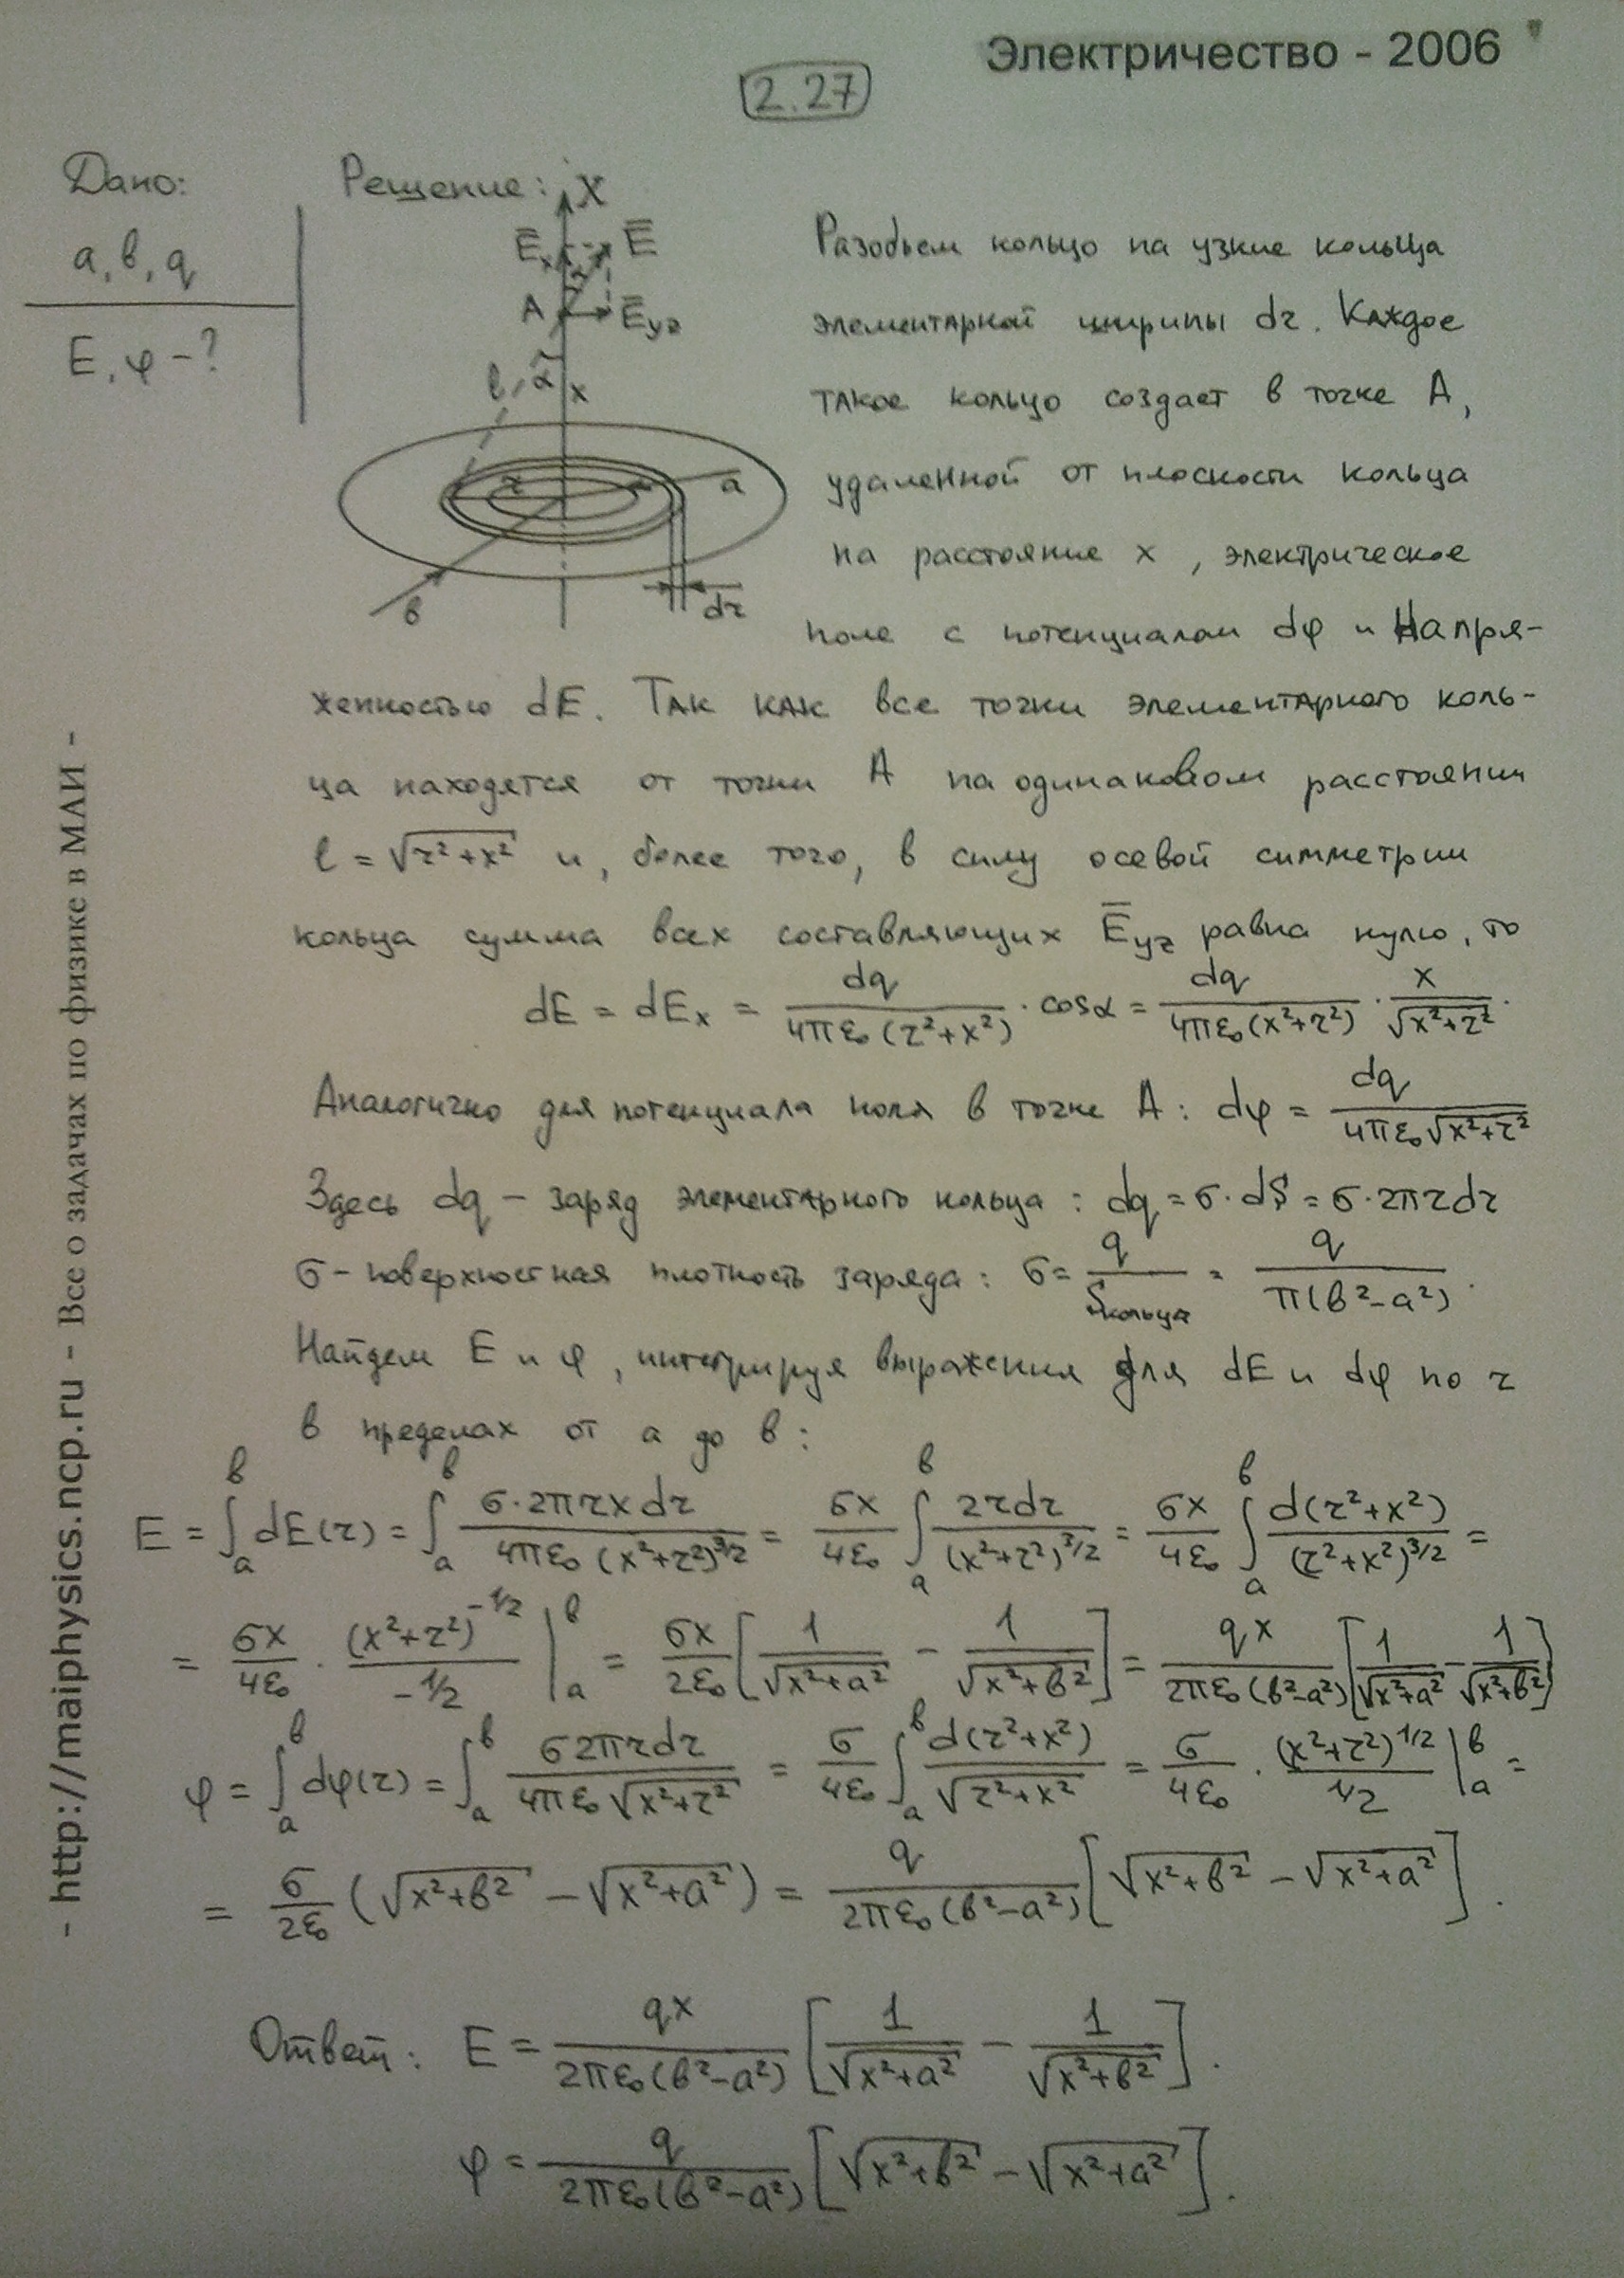 Электричество - 2006
2.27
Дано:
a, b, q
E, φ - ?
Решение:
X
E
Eₓ
E_yz
A
α
l
x
a
r
b
dr
Разобьем кольцо на узкие кольца
элементарной ширины dr. Каждое
такое кольцо создает в точке A,
удаленной от плоскости кольца
на расстояние x, электрическое
поле с потенциалом dφ и напря-
женностью dE. Так как все точки элементарного коль-
ца находятся от точки A на одинаковом расстоянии
l = √(r²+x²) и, более того, в силу осевой симметрии
кольца сумма всех составляющих E_yz равна нулю, то
dE = dEₓ = dq/(4πε₀(r²+x²)) · cosα = dq/(4πε₀(x²+r²)) · x/√(x²+r²).
Аналогично для потенциала поля в точке A: dφ = dq/(4πε₀√(x²+r²))
Здесь dq - заряд элементарного кольца: dq = σ·dS = σ·2πrdr
σ - поверхностная плотность заряда: σ = q/S_кольца = q/(π(b²-a²)).
Найдем E и φ, интегрируя выражения для dE и dφ по r
в пределах от a до b:
E = ∫ₐᵇ dE(r) = ∫ₐᵇ σ·2πrxdr/(4πε₀(x²+r²)^(3/2)) = σx/(4ε₀) ∫ₐᵇ 2rdr/(x²+r²)^(3/2) = σx/(4ε₀) ∫ₐᵇ d(r²+x²)/(r²+x²)^(3/2) =
= σx/(4ε₀) · (x²+r²)^(-1/2)/(-1/2) |ₐᵇ = σx/(2ε₀) [1/√(x²+a²) - 1/√(x²+b²)] = qx/(2πε₀(b²-a²)) [1/√(x²+a²) - 1/√(x²+b²)]
φ = ∫ₐᵇ dφ(r) = ∫ₐᵇ σ2πrdr/(4πε₀√(x²+r²)) = σ/(4ε₀) ∫ₐᵇ d(r²+x²)/√(r²+x²) = σ/(4ε₀) · (x²+r²)^(1/2)/(1/2) |ₐᵇ =
= σ/(2ε₀) (√(x²+b²) - √(x²+a²)) = q/(2πε₀(b²-a²)) [√(x²+b²) - √(x²+a²)].
Ответ: E = qx/(2πε₀(b²-a²)) [1/√(x²+a²) - 1/√(x²+b²)].
φ = q/(2πε₀(b²-a²)) [√(x²+b²) - √(x²+a²)].
- http://maiphysics.ncp.ru - Все о задачах по физике в МАИ -